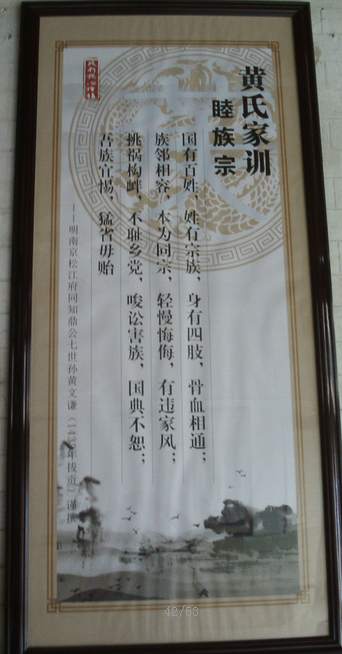 黄氏家训
睦族宗
国有百姓，姓有宗族，身有四肢，骨血相通；
族邻相容，本为同宗，轻慢侮侮，有违家风；
挑祸构衅，不耻乡党，唆讼害族，国典不恕；
吾族宜惕，猛省毋贻
——明南京松江府同知鼎公七世孙黄文谦
42/53